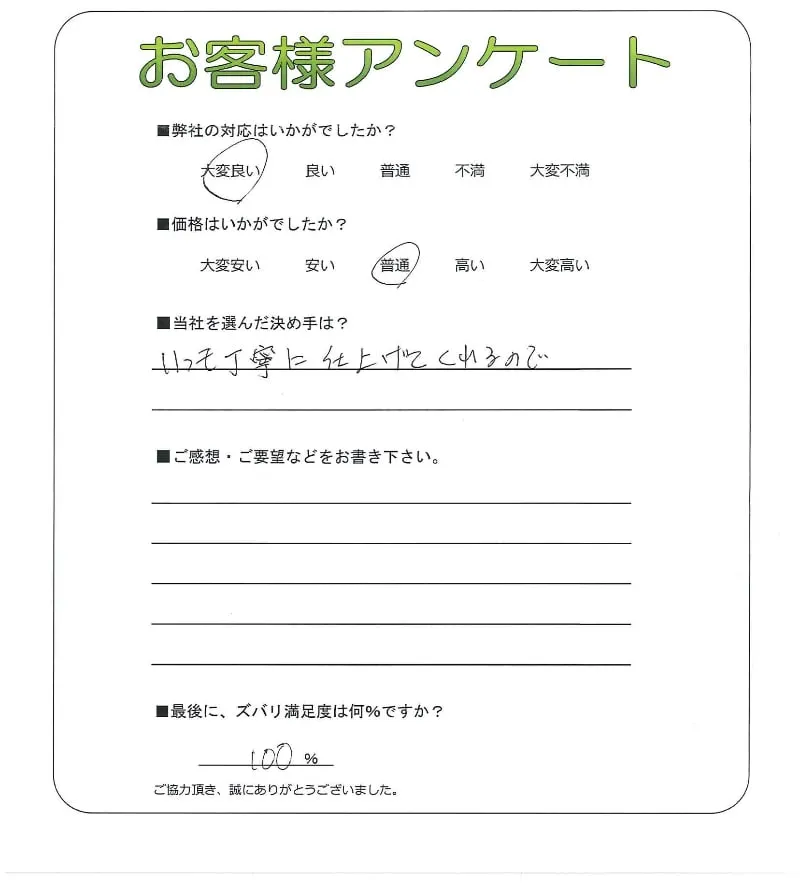 お客様アンケート
■弊社の対応はいかがでしたか？
大変良い 良い 普通 不満 大変不満
■価格はいかがでしたか？
大変安い 安い 普通 高い 大変高い
■当社を選んだ決め手は？
いつも丁寧に仕上げてくれるので
■ご感想・ご要望などをお書き下さい。
■最後に、ズバリ満足度は何%ですか？
100 %
ご協力頂き、誠にありがとうございました。